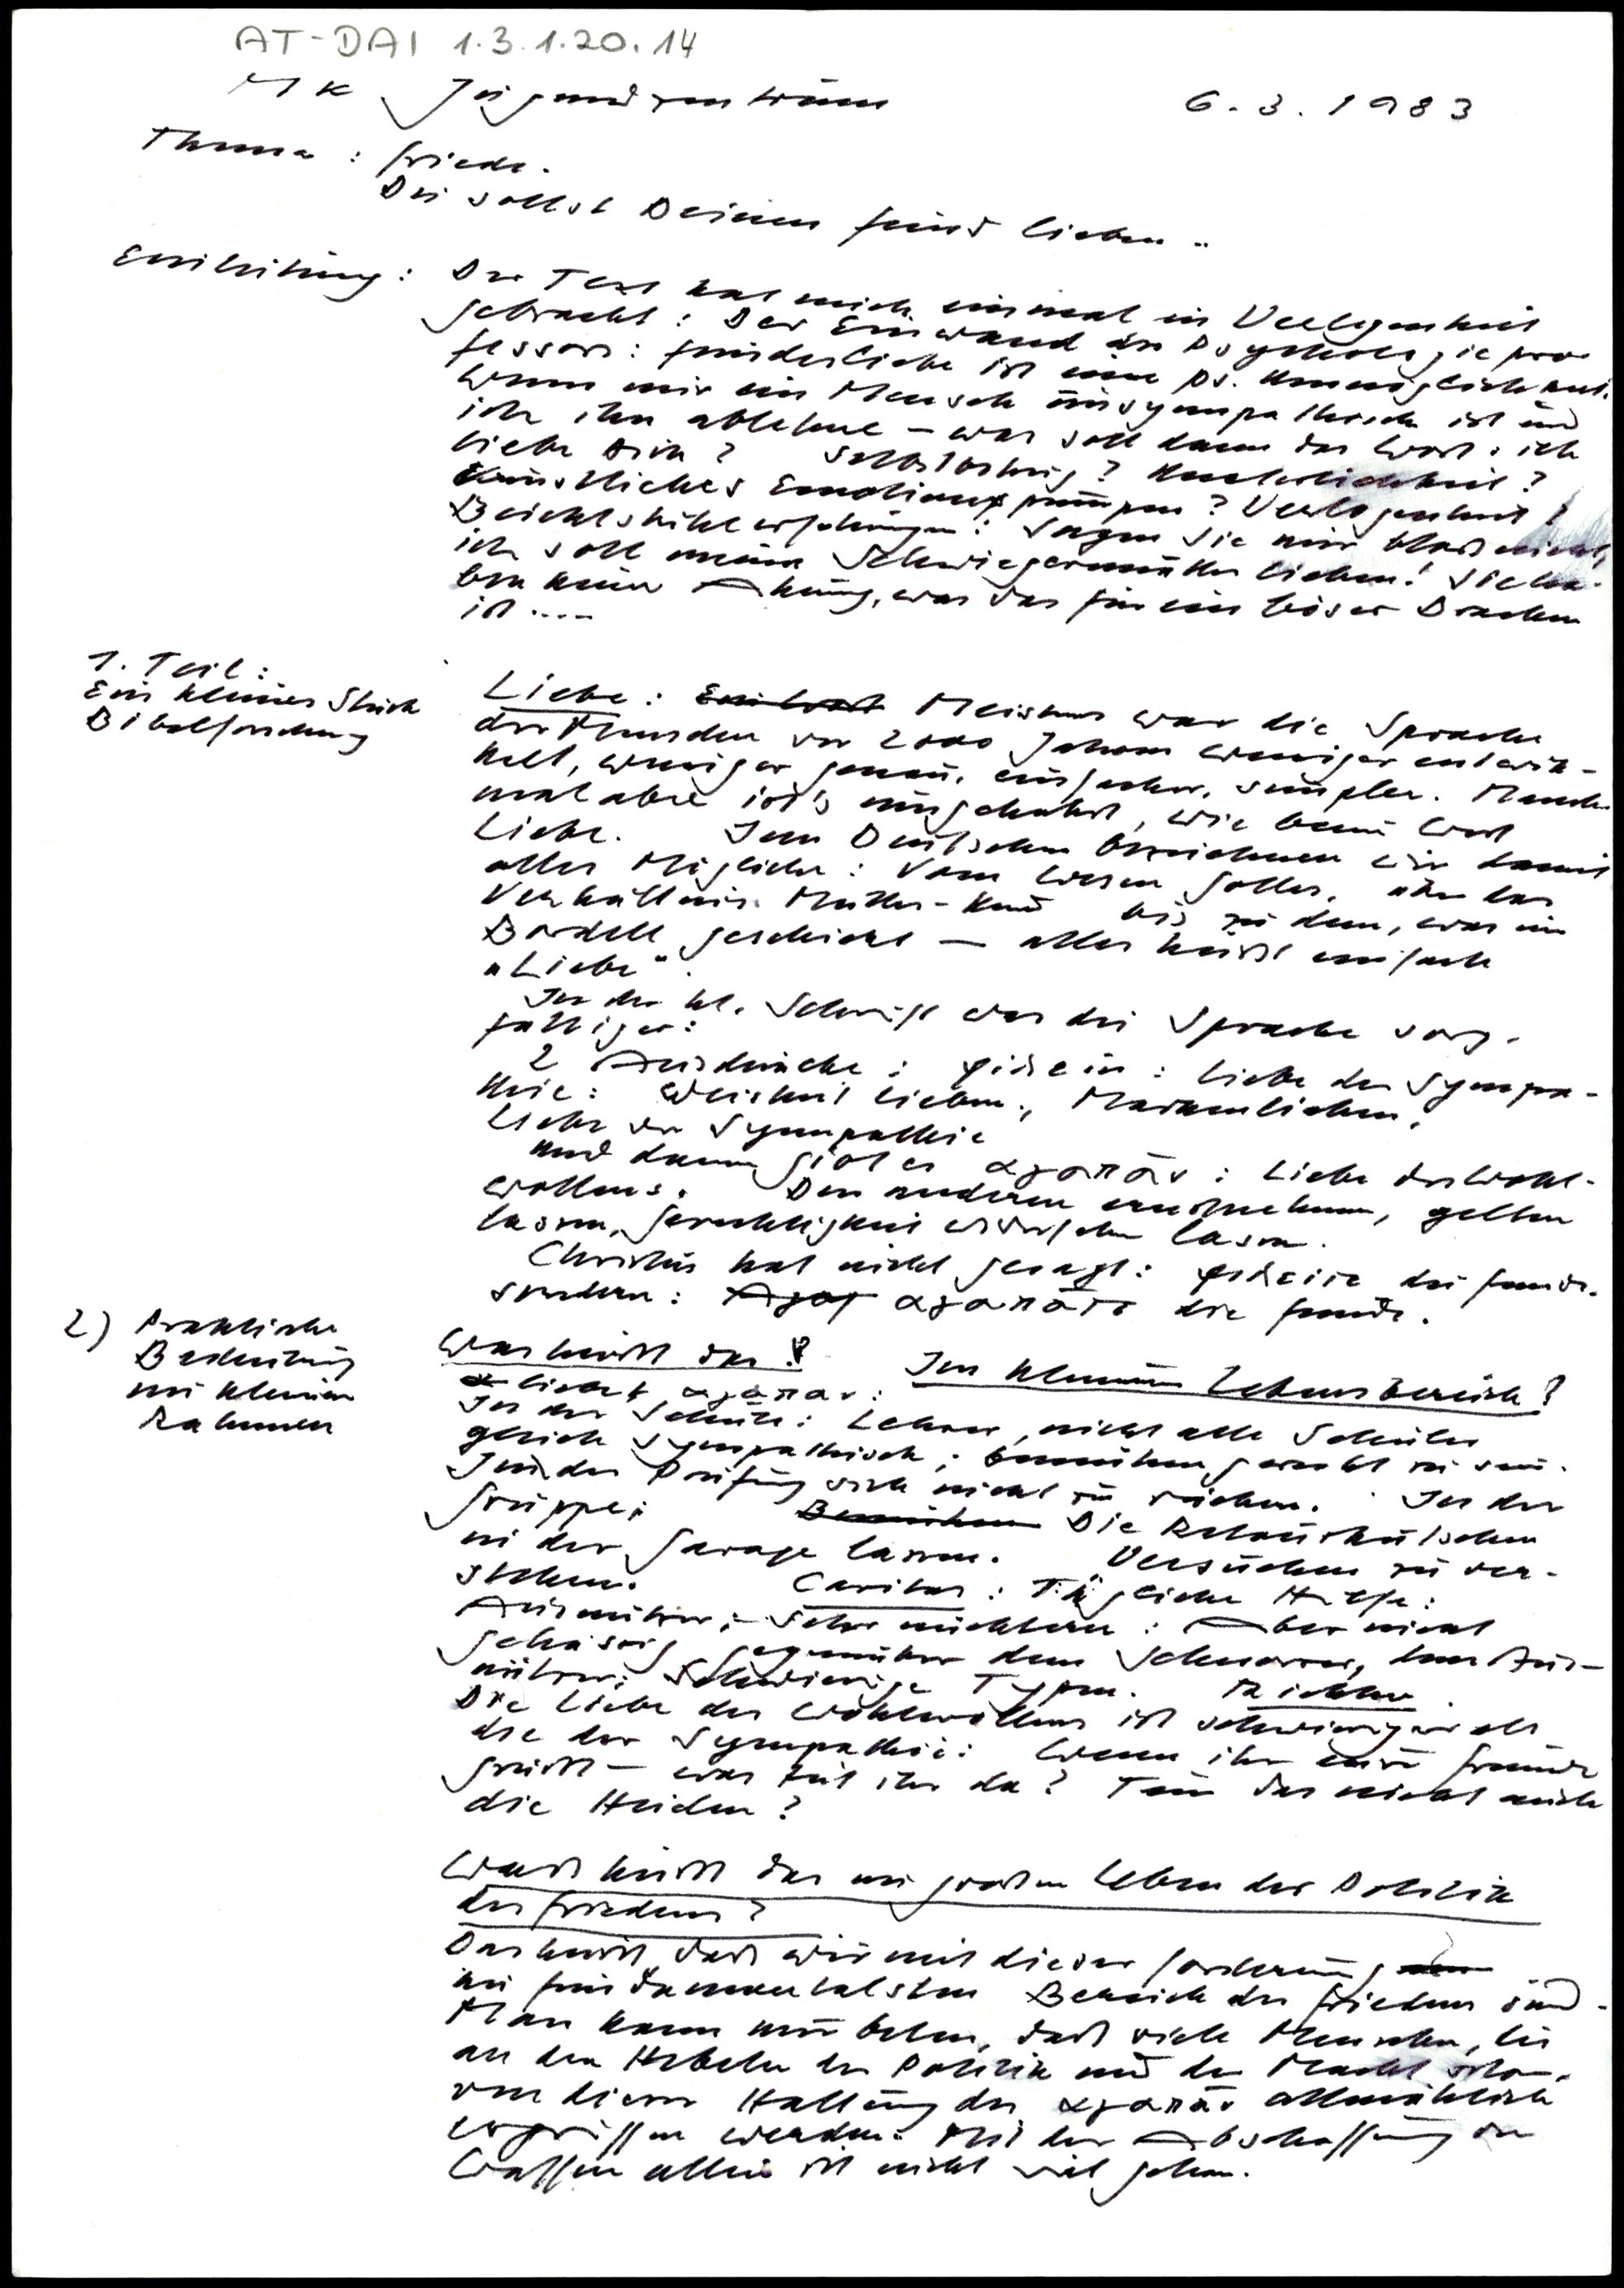 AT-DAI 1.3.1.20.14
MK Jugendzentrum 6.3.1983
Thema: Friede.
Du sollst Deinen Feind lieben..
Einleitung: Der Text hat mich einmal in Verlegenheit
gebracht: Der Einwand des Psychologiepro-
fessors: Feindesliebe ist eine ps. Unmöglichkeit.
Wenn mir ein Mensch unsympathisch ist und
ich ihn ablehne – was soll dann das Wort: ich
liebe Dich? Selbstbetrug? Unehrlichkeit?
Künstliches Emotionenpumpen? Verlogenheit?
Beichtstuhlerfahrungen: Sagen Sie mir bloß nicht,
ich soll meine Schwiegermutter lieben! Sie ha-
ben keine Ahnung, was das für ein böser Drachen
ist ....
1. Teil:
Ein kleines Stück
Bibelforschung
Liebe: Meistens war die Sprache
der Menschen vor 2000 Jahren weniger entwik-
kelt, weniger genau, einfacher, simpler. Manch-
mal aber ist's umgekehrt, wie beim Wort
Liebe. Im Deutschen bezeichnen wir damit
alles Mögliche: Vom Wesen Gottes, über das
Verhältnis Mutter-Kind bis zu dem, was im
Bordell geschieht – alles heißt einfach
"Liebe".
In der hl. Schrift war die Sprache sorg-
fältiger:
2 Ausdrücke: φιλεῖν: Liebe der Sympa-
thie: Weisheit lieben, Marken lieben,
Liebe der Sympathie
Und dann gibt es αγαπᾶν: Liebe des Wohl-
wollens. Den anderen ernstnehmen, gelten
lassen, Gerechtigkeit widerfahren lassen.
Christus hat nicht gesagt: φιλεῖτε die Feinde.
sondern: Agap αγαπᾶτε die Feinde.
2) Praktische
Bedeutung
im kleinen
Rahmen
Was heißt das? Im kleinen Lebensbereich?
liebet αγαπαν:
In der Schule: Lehrer, nicht alle Schüler
gleich sympathisch; bemühen gerecht zu sein.
In der Prüfung sich nicht zu rächen. In der
Gruppe: Bemühen Die Retourkutschen
in der Garage lassen. Versuchen zu ver-
stehen. Caritas: Tägliche Hilfe:
Ausnützer; – Sehr nüchtern: Aber nicht
gehässig gegenüber dem Schnorrer, dem Aus-
nützer; Schwierige Typen. Richter.
Die Liebe des Wohlwollens ist schwieriger als
die der Sympathie: Wenn ihr eure Freunde
grüßt – was tut ihr da? Tun das nicht auch
die Heiden?
Was heißt das im großen Leben der Politik
des Friedens?
Das heißt, daß wir mit dieser Forderung
im fundamentalsten Bereich des Friedens sind.
Man kann nur beten, daß viele Menschen, die
an den Hebeln der Politik und der Macht sitzen,
von dieser Haltung des αγαπᾶν allmählich
ergriffen werden. Mit der Abschaffung der
Waffen allein ist nicht viel getan.